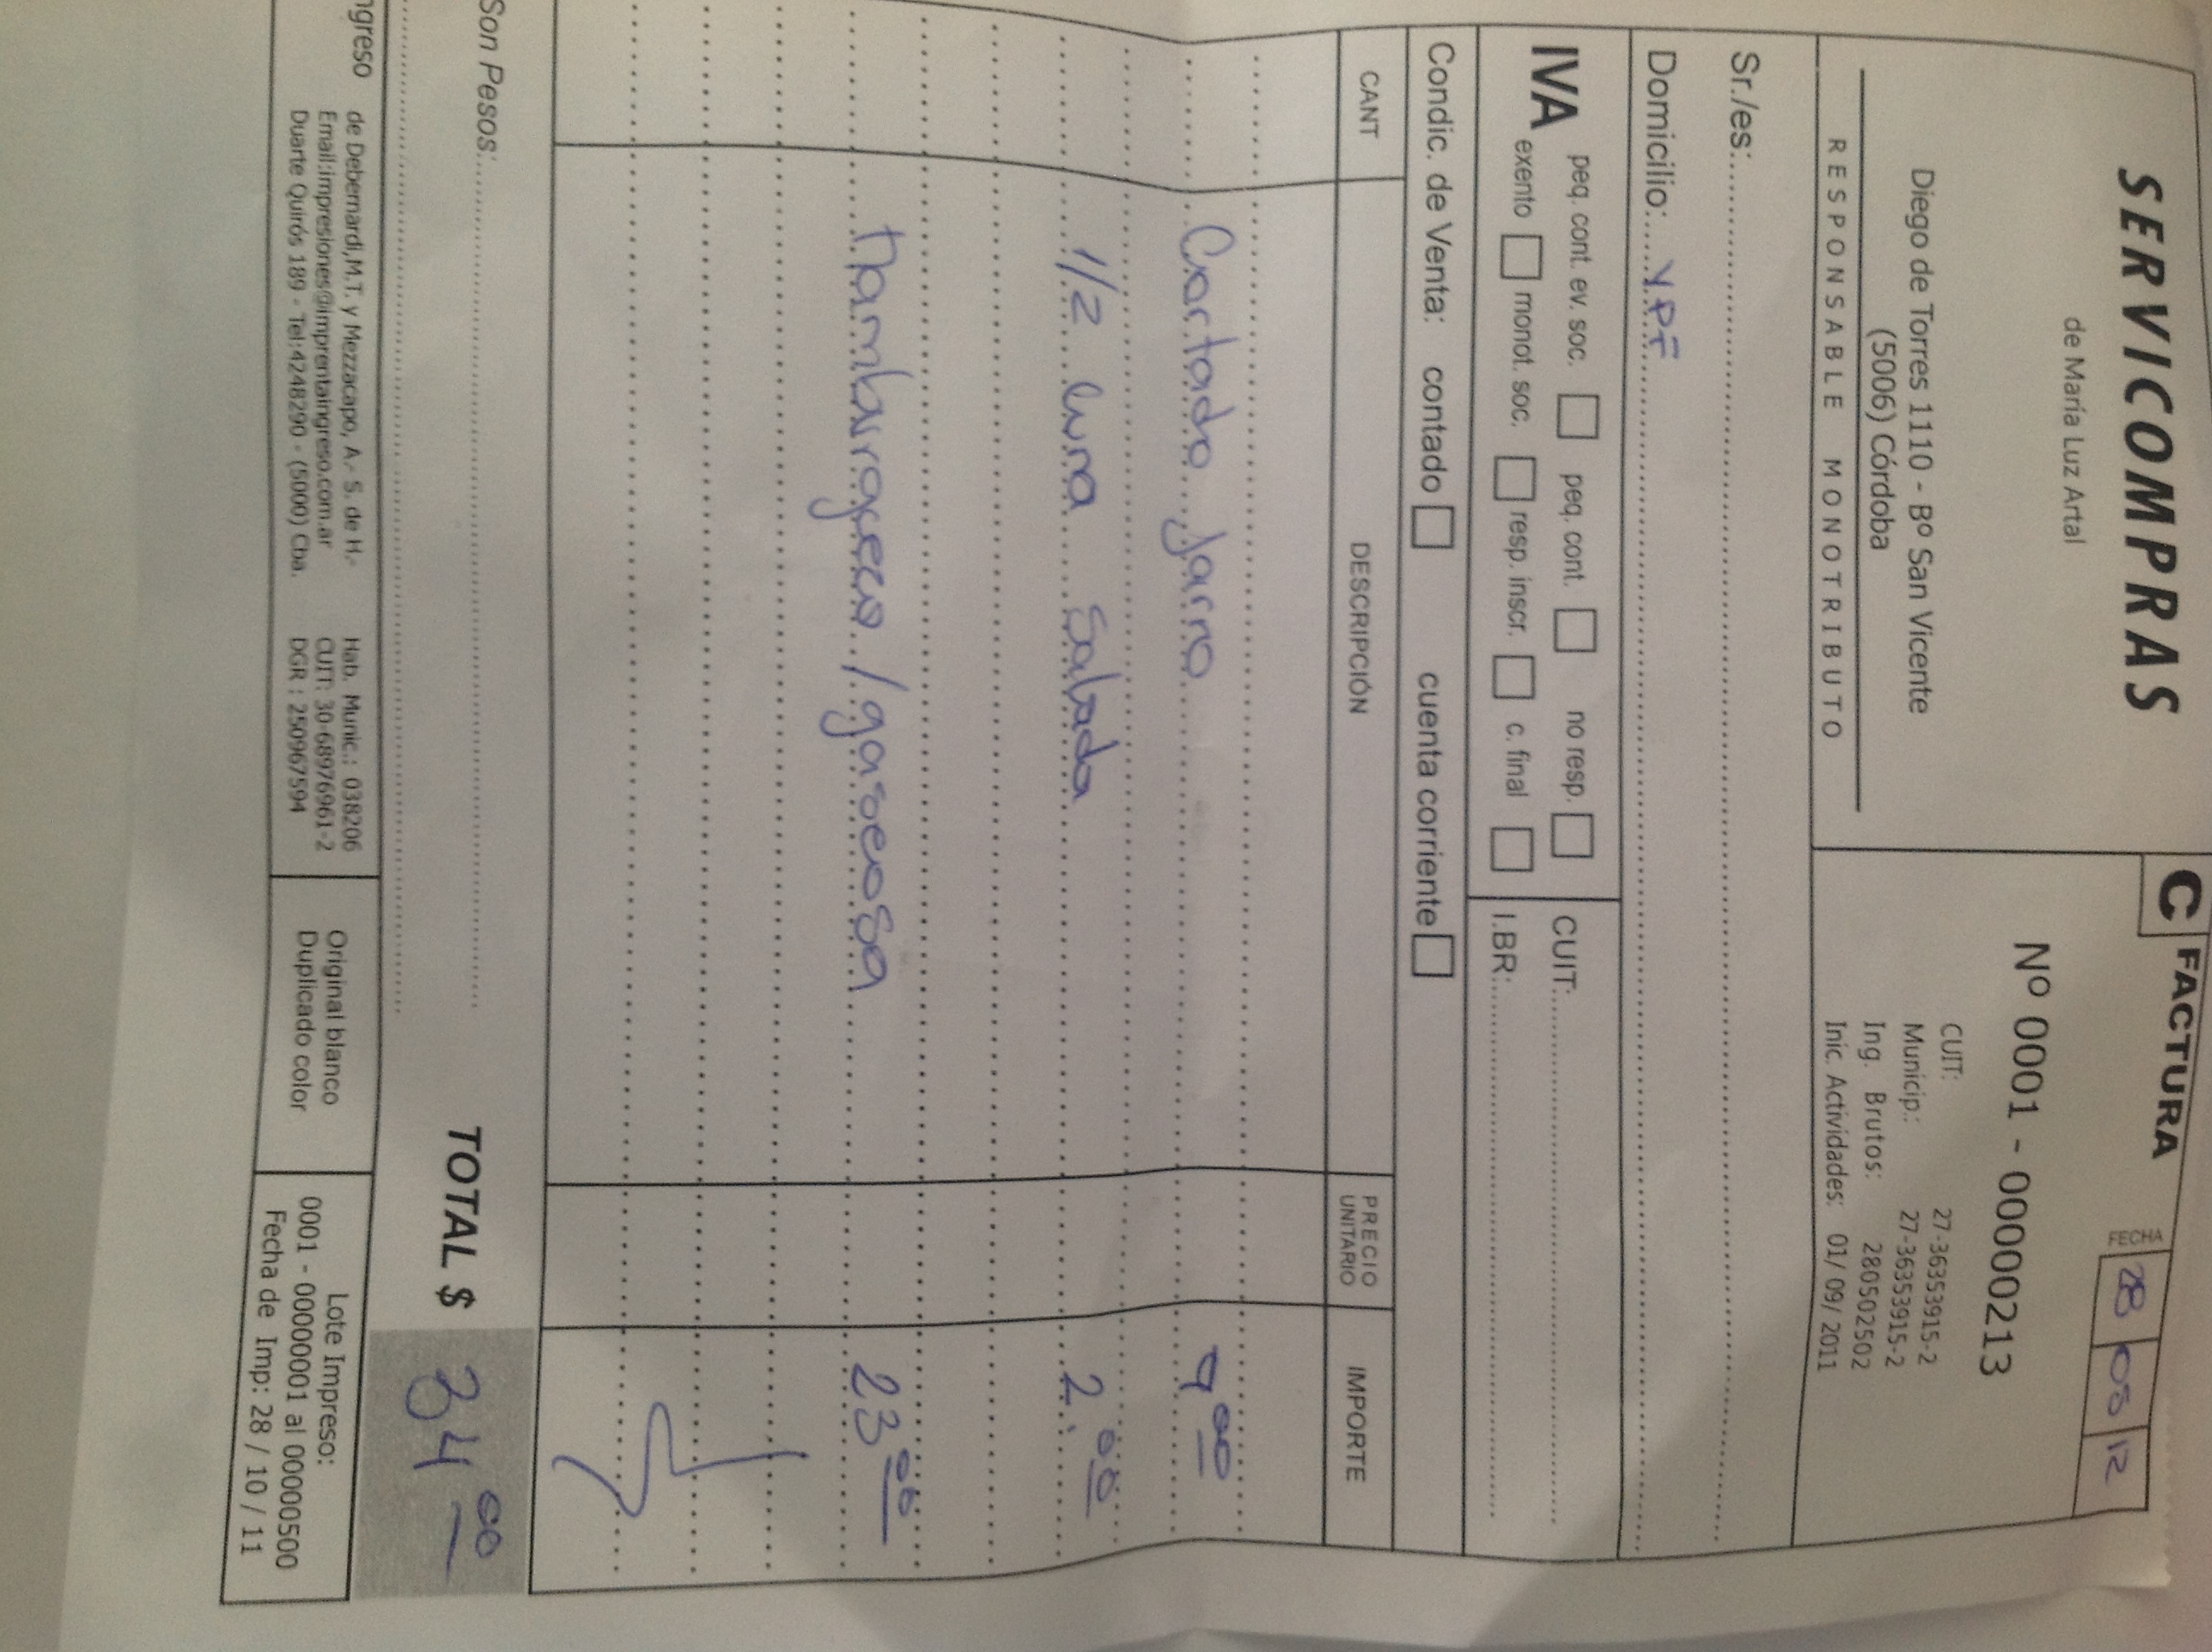 SERVICOMPRAS
de María Luz Artal
Diego de Torres 1110 - Bº San Vicente
(5006) Córdoba
RESPONSABLE MONOTRIBUTO
C FACTURA
FECHA 28 05 12
Nº 0001 - 00000213
CUIT: 27-36353915-2
Municip.: 27-36353915-2
Ing. Brutos: 280502502
Inic. Actividades: 01/ 09/ 2011
Sr./es:
Domicilio: YPF
IVA
peq. cont. ev. soc. peq. cont. no resp.
exento monot. soc. resp. inscr. c. final
CUIT:
I.BR:
Condic. de Venta: contado cuenta corriente
CANT DESCRIPCIÓN PRECIO UNITARIO IMPORTE
Cortado Jarro 9 00
1/2 luna Salada 2. 00
/gaseosa 23 00
Son Pesos:
TOTAL $ 34 00
ngreso
de Debernardi,M.T. y Mezzacapo, A.- S. de H.-
Email:impresiones@imprentaingreso.com.ar
Duarte Quirós 189 - Tel:4248290 - (5000) Cba.
Hab. Munic.: 038206
CUIT: 30-68976961-2
DGR : 250967594
Original blanco
Duplicado color
Lote Impreso:
0001 - 00000001 al 00000500
Fecha de Imp: 28 / 10 / 11